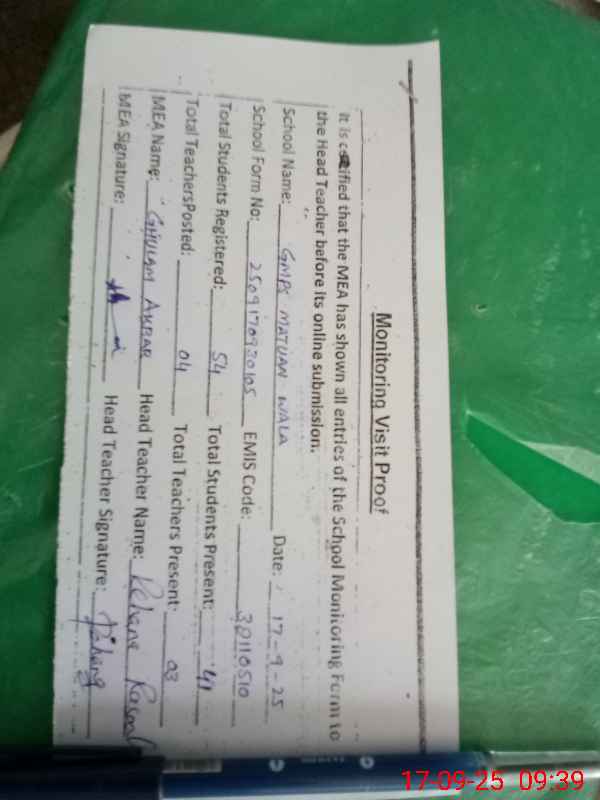 Monitoring Visit Proof
It is certified that the MEA has shown all entries of the School Monitoring Form to
the Head Teacher before its online submission.
School Name: GMPS MATUAN WALA Date: 17-9-25
School Form No: 2509170930105 EMIS Code: 38110510
Total Students Registered: 54 Total Students Present: 41
Total TeachersPosted: 04 Total Teachers Present: 03
MEA Name: GHULAM AKBAR Head Teacher Name: Rehana
MEA Signature: Head Teacher Signature:
17-09-25 09:39